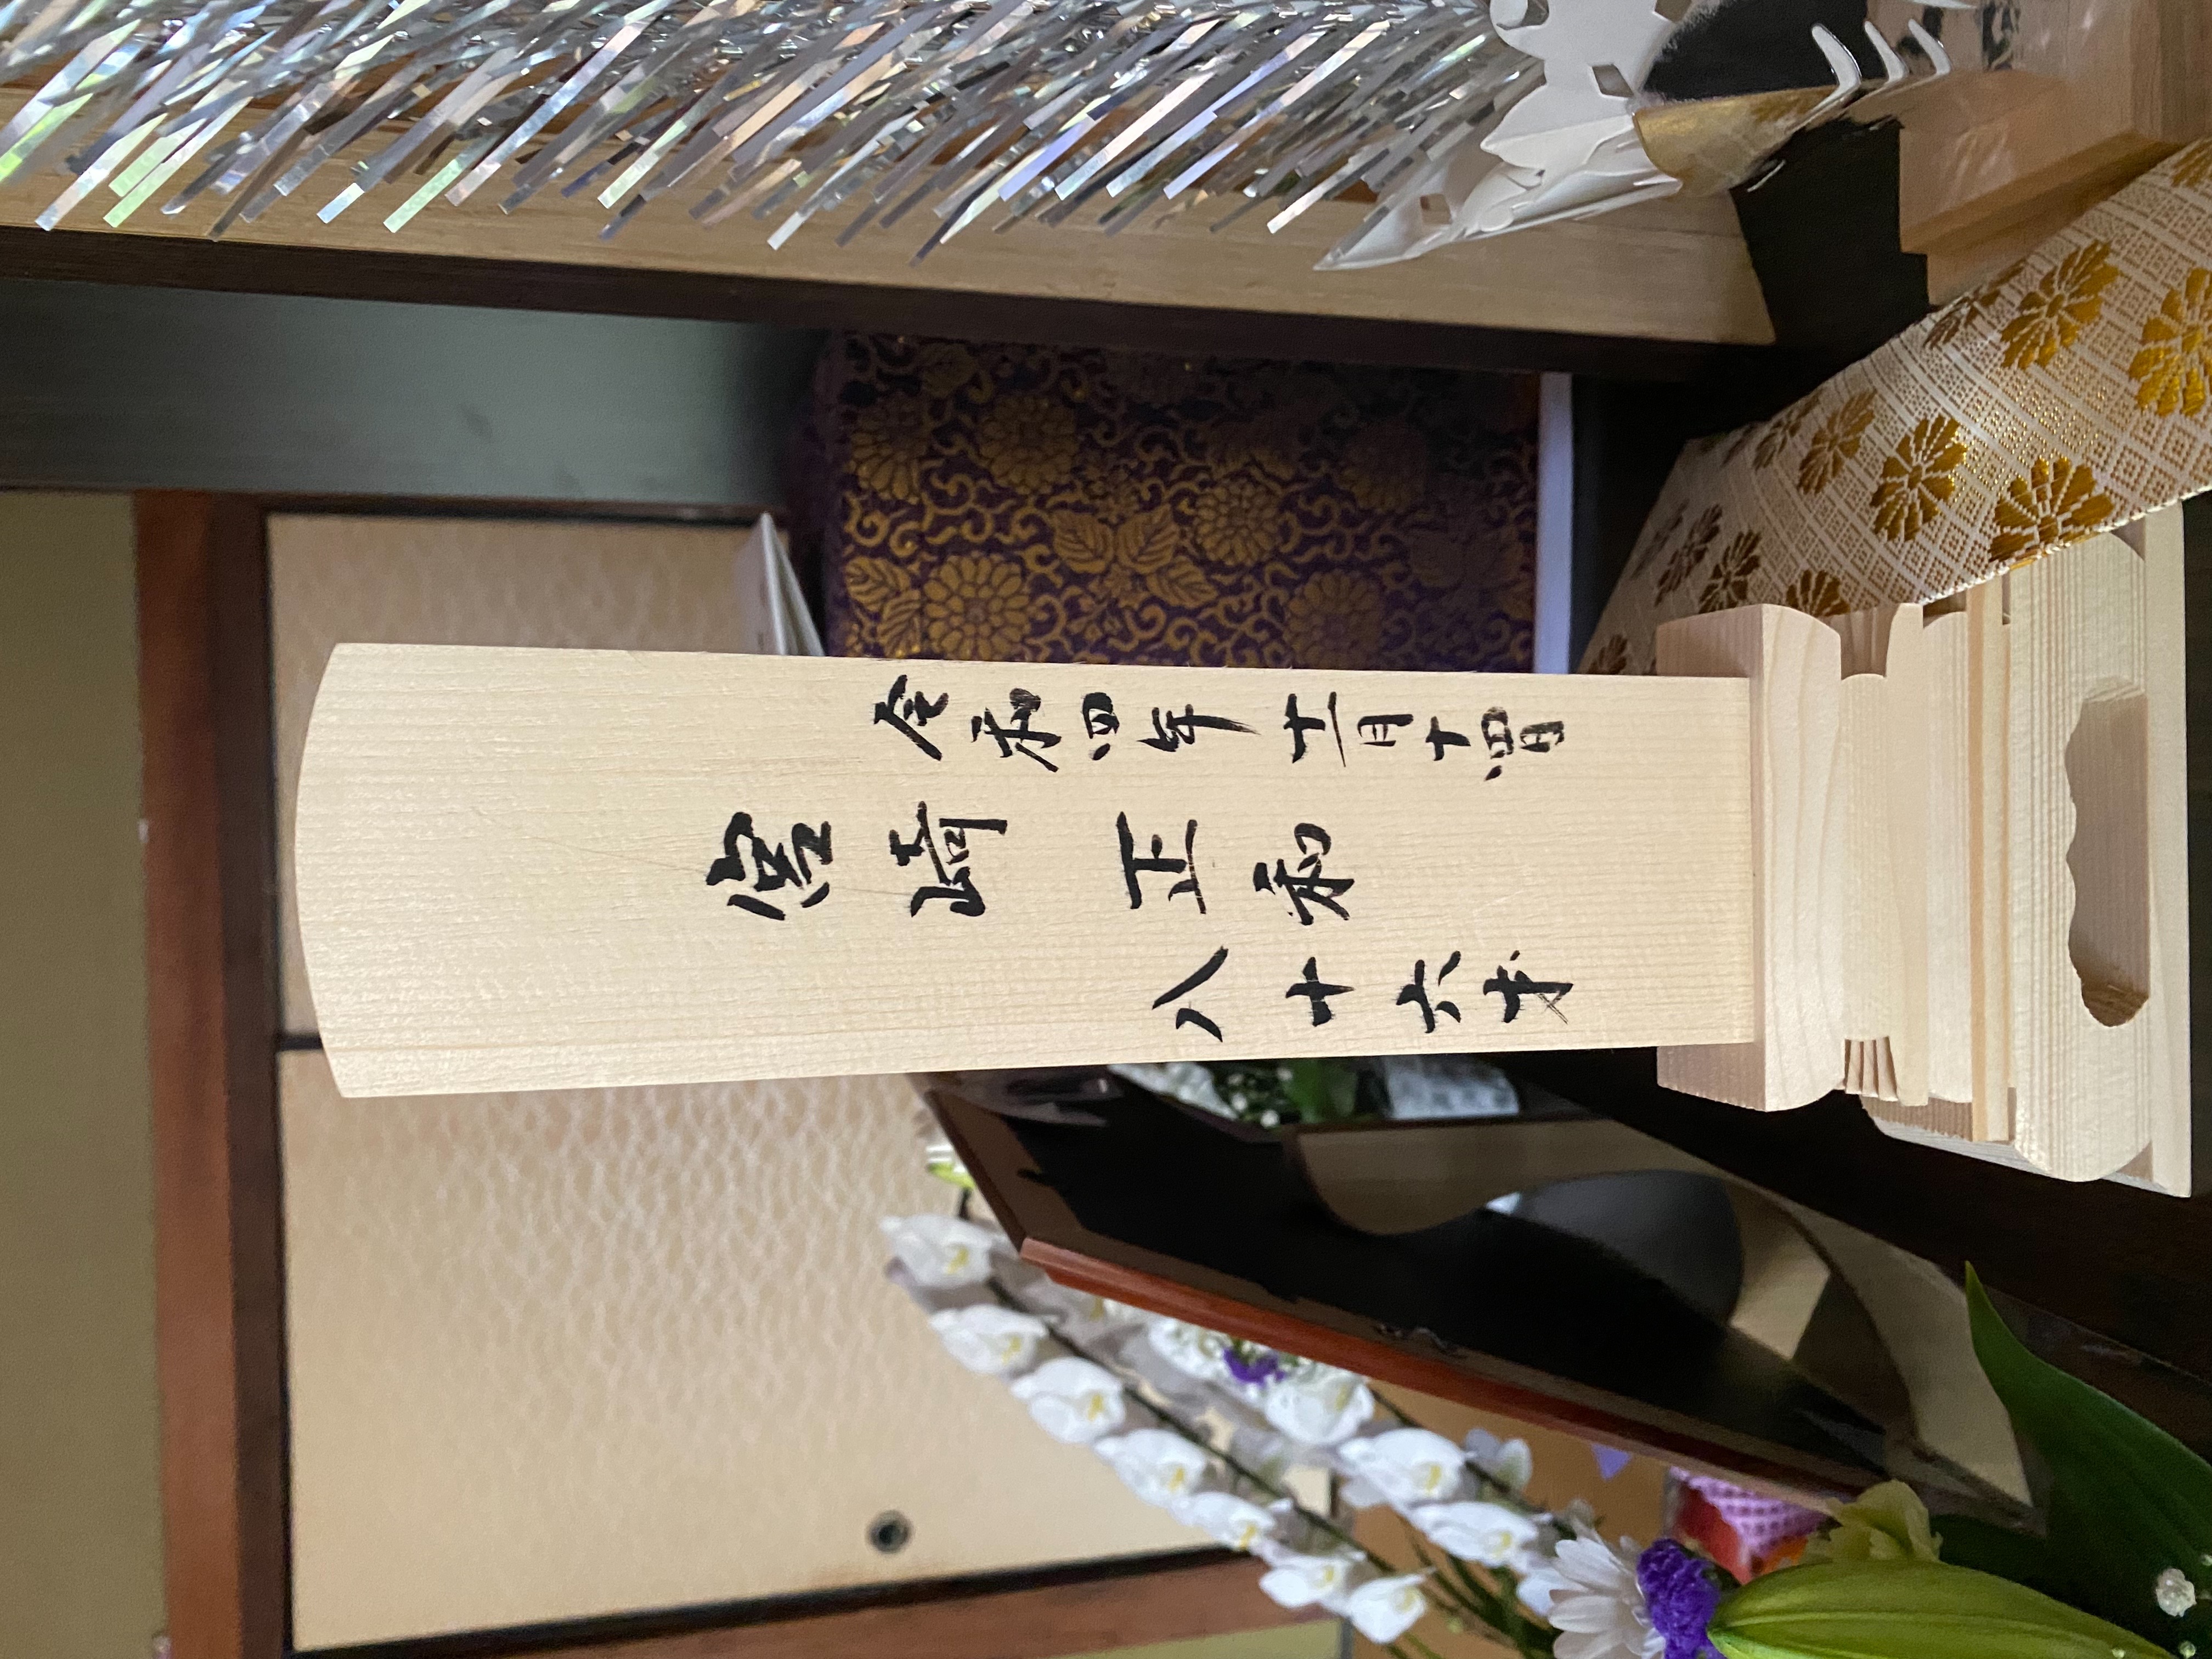 令和四年十一月十四日
窪崎正和
八十六才